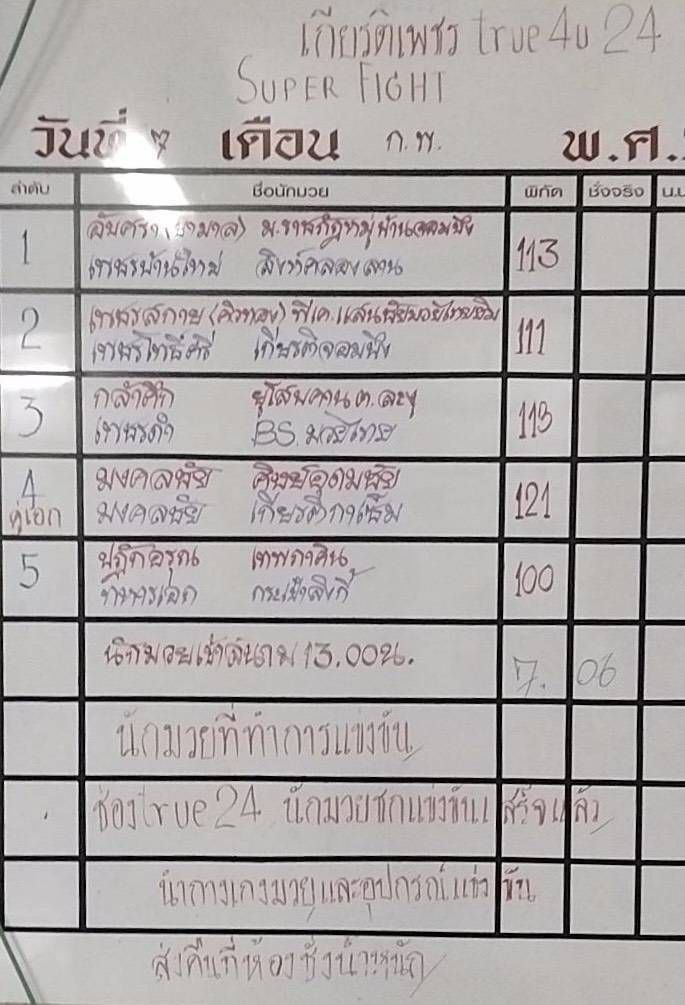 เกียรติเพชร true4u 24
SUPER FIGHT
วันที่ 7 เดือน ก.พ. พ.ศ.
ลำดับ ชื่อนักมวย พิกัด ชั่งจริง น.น
1 อันศรา ม.ราชภัฏหมู่บ้านจอมบึง
เพชรบ้านใหม่ สิงห์คลองลาน 113
2 เพชรสกาย (ศิวกร) พีเค.แสนชัยมวยไทยยิม
เพชรโพธิ์ศรี เกียรติจอมบึง 111
3 กล้าศึก
เพชรดำ BS.มวยไทย 113
4 มงคลชัย ศิษย์อุดมชัย
คู่เอก มงคลชัย เกียรติกาเซ็ม 121
5 ปฏักอรุณ เทพภาคิน
ทหารเอก กระเป๋าสิงกี้ 100
นักมวยเข้าสนาม 13.00น.
7. 06
นักมวยที่ทำการแข่งขัน
ช่องtrue24 นักมวยชกแข่งขันเสร็จแล้ว
นำกางเกงมวยและอุปกรณ์แข่งขัน
ส่งคืนที่ห้องชั่งน้ำหนัก